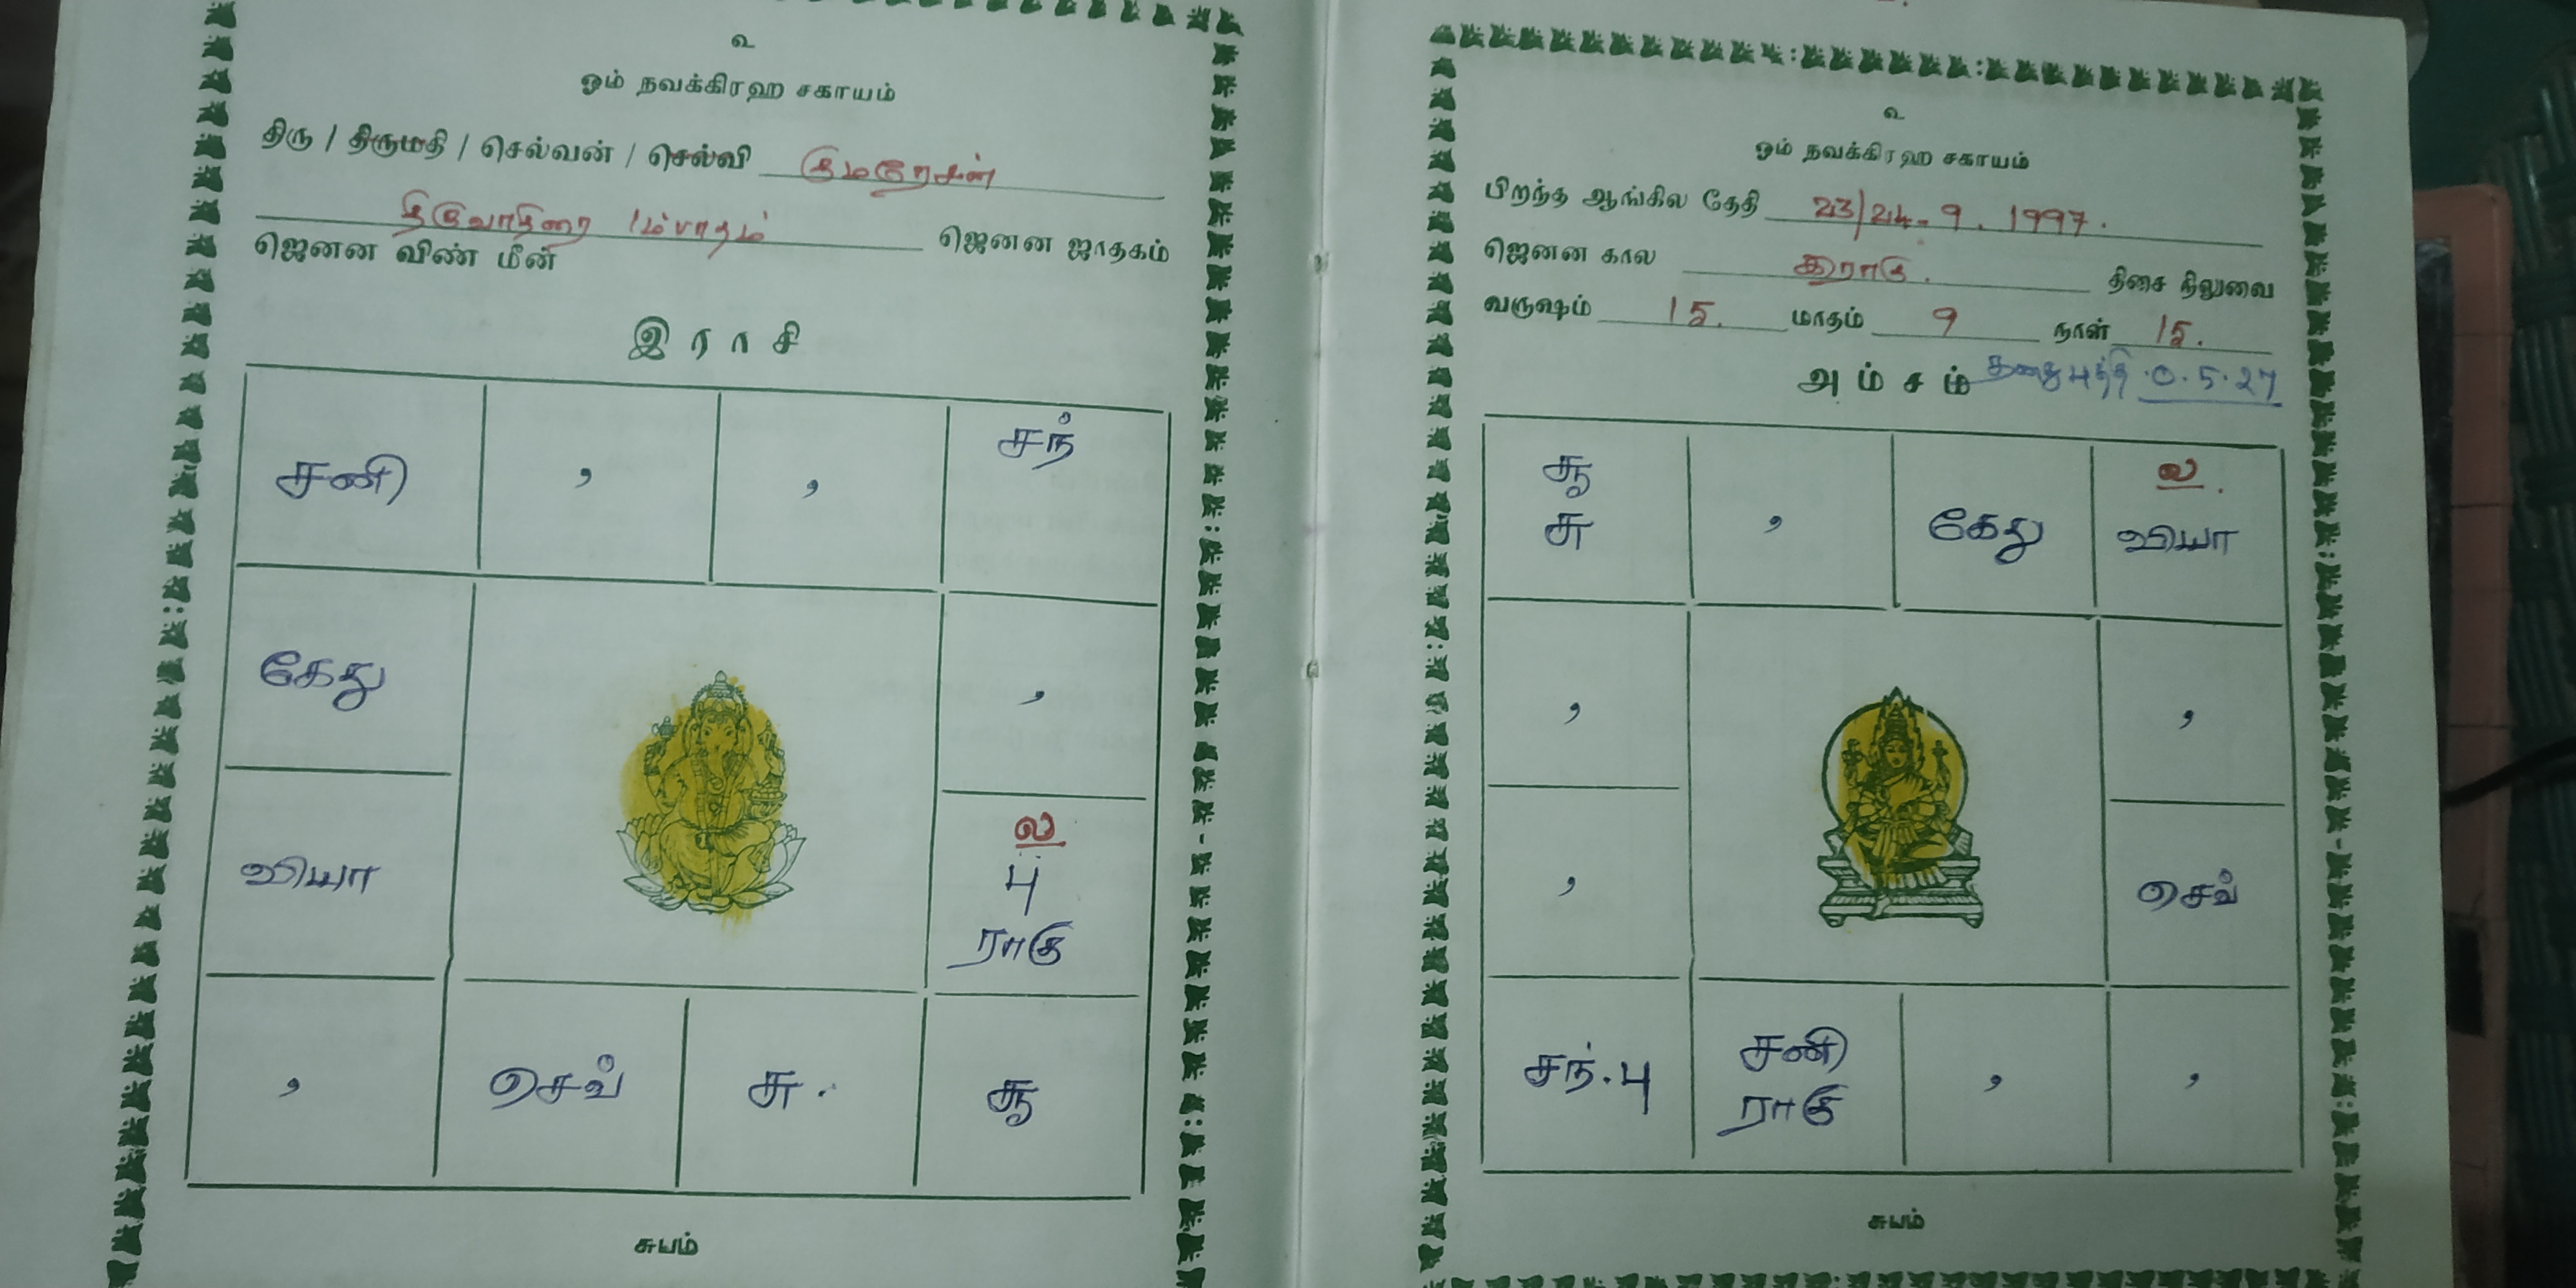 உ
ஓம் நவக்கிரஹ சகாயம்
திரு / திருமதி / செல்வன் / செல்வி குமரேசன்
திருவாதிரை 1ம் பாதம் ஜெனன ஜாதகம்
ஜெனன விண் மீன்
இராசி
சனி , , சந்
கேது ,
வியா ல
பு
ராகு
, செவ் சு. சூ
சுபம்
உ
ஓம் நவக்கிரஹ சகாயம்
பிறந்த ஆங்கில தேதி 23/24.9.1997.
ஜெனன கால இராகு. திசை நிலுவை
வருஷம் 15. மாதம் 9 நாள் 15.
அம்சம் புத்தி.0.5.27
சூ
சு , கேது ல.
வியா
, ,
, செவ்
சந்.பு சனி
ராகு , ,
சுபம்